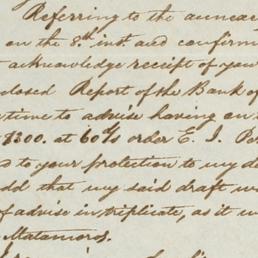 Referring to the
on the 8th inst. and confirm
acknowledge receipt of you
closed Report of the Bank of
time to advise having on
$300. at 60 d/s order E. J.
to your protection to my d
dd that my said draft w
of advise in triplicate, as it w
Matamoros.